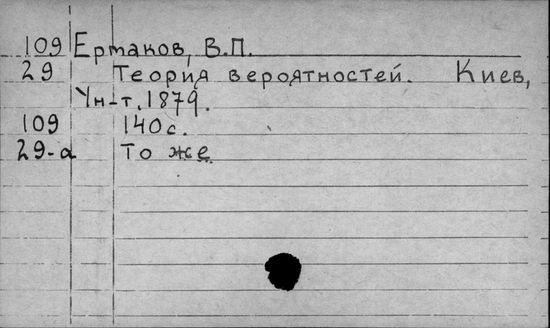 109 Ермаков, В.П.
29 Теория вероятностей. Киев,
Ун-т, 1879.
109 140с.
29-а То же